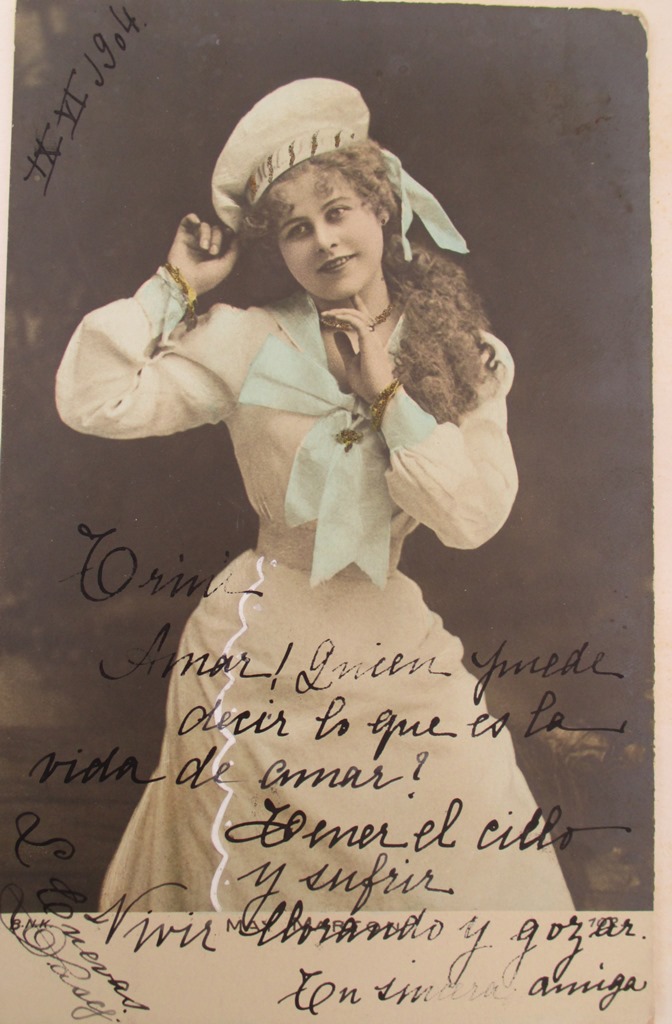 IX-VI-1904.
Trini
Amar! Quien puede
decir lo que es la
vida de amar?
Tener el cillo
y sufrir
Vivir llorando y gozar.
Tu sincera amiga
B.N.K.
Cuevas.